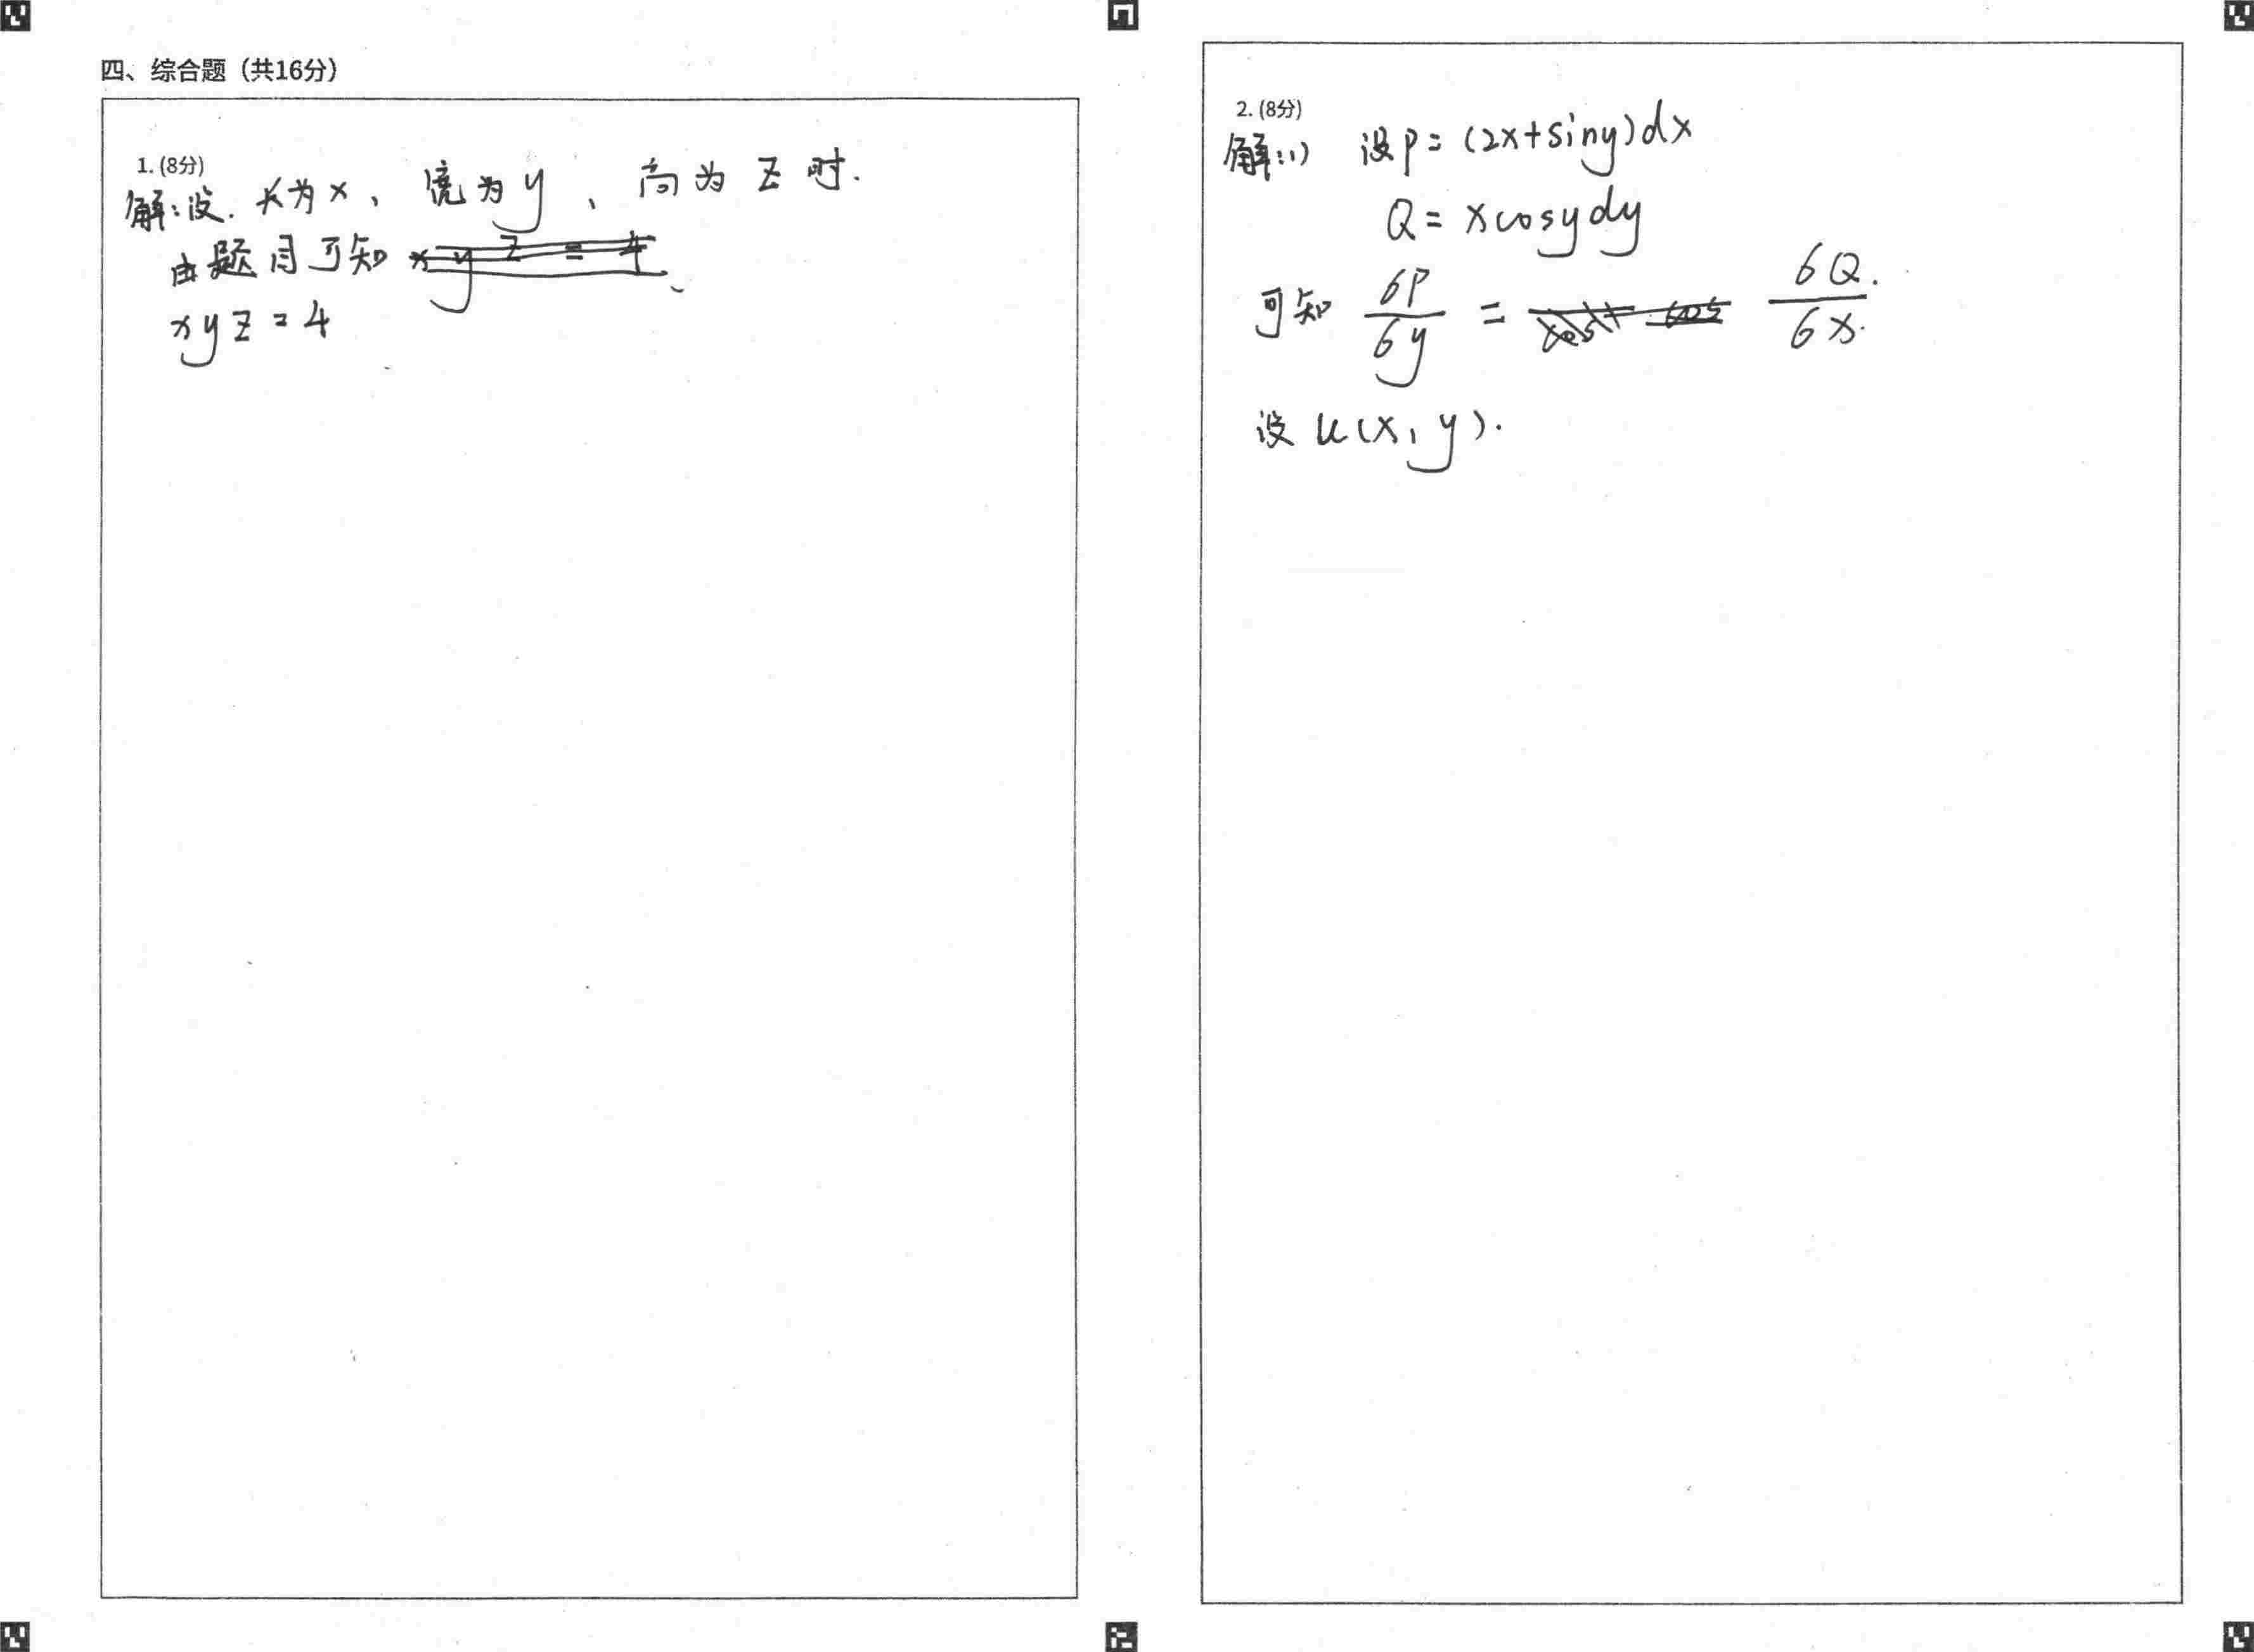 四、综合题（共16分）
1. (8分)
解：设．长为x、宽为y、高为z时．
由题目可知
xyz = 4
2. (8分)
解：(1) 设P = (2x+siny)dx
Q = xcosydy
可知 6P/6y = 6Q/6x.
设 u(x, y).